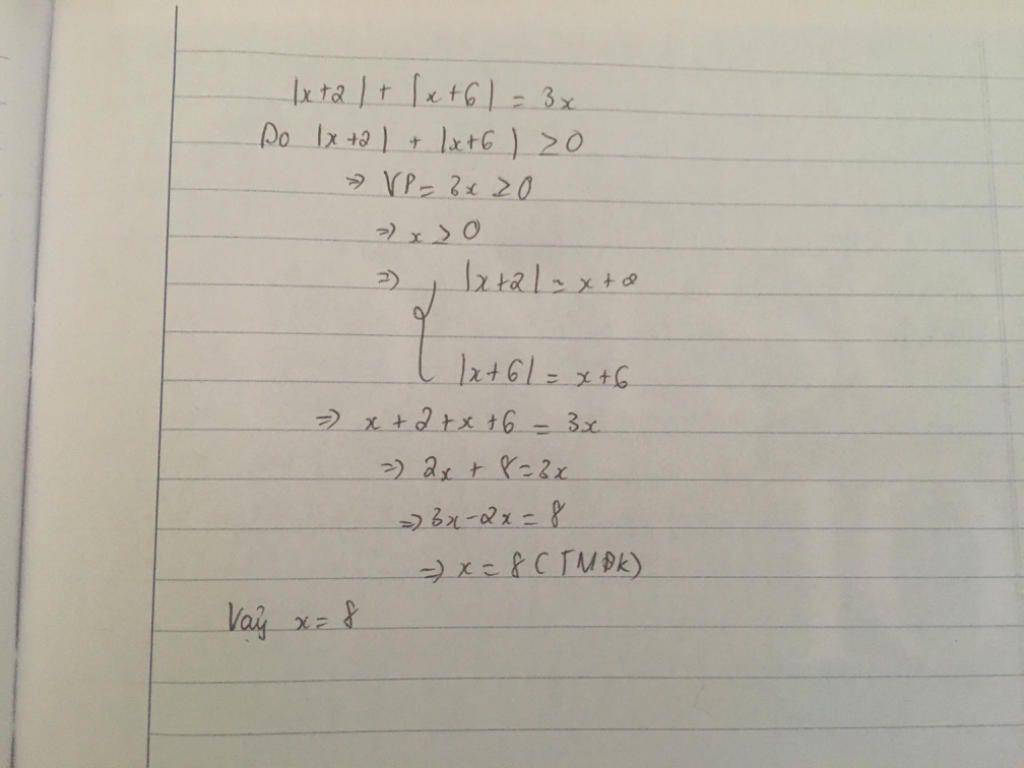 |x+2| + |x+6| = 3x
Do |x+2| + |x+6| ≥ 0
⇒ VP = 3x ≥ 0
⇒ x > 0
⇒ { |x+2| = x+2
|x+6| = x+6
⇒ x + 2 + x + 6 = 3x
⇒ 2x + 8 = 3x
⇒ 3x - 2x = 8
⇒ x = 8 (TMĐK)
Vậy x = 8